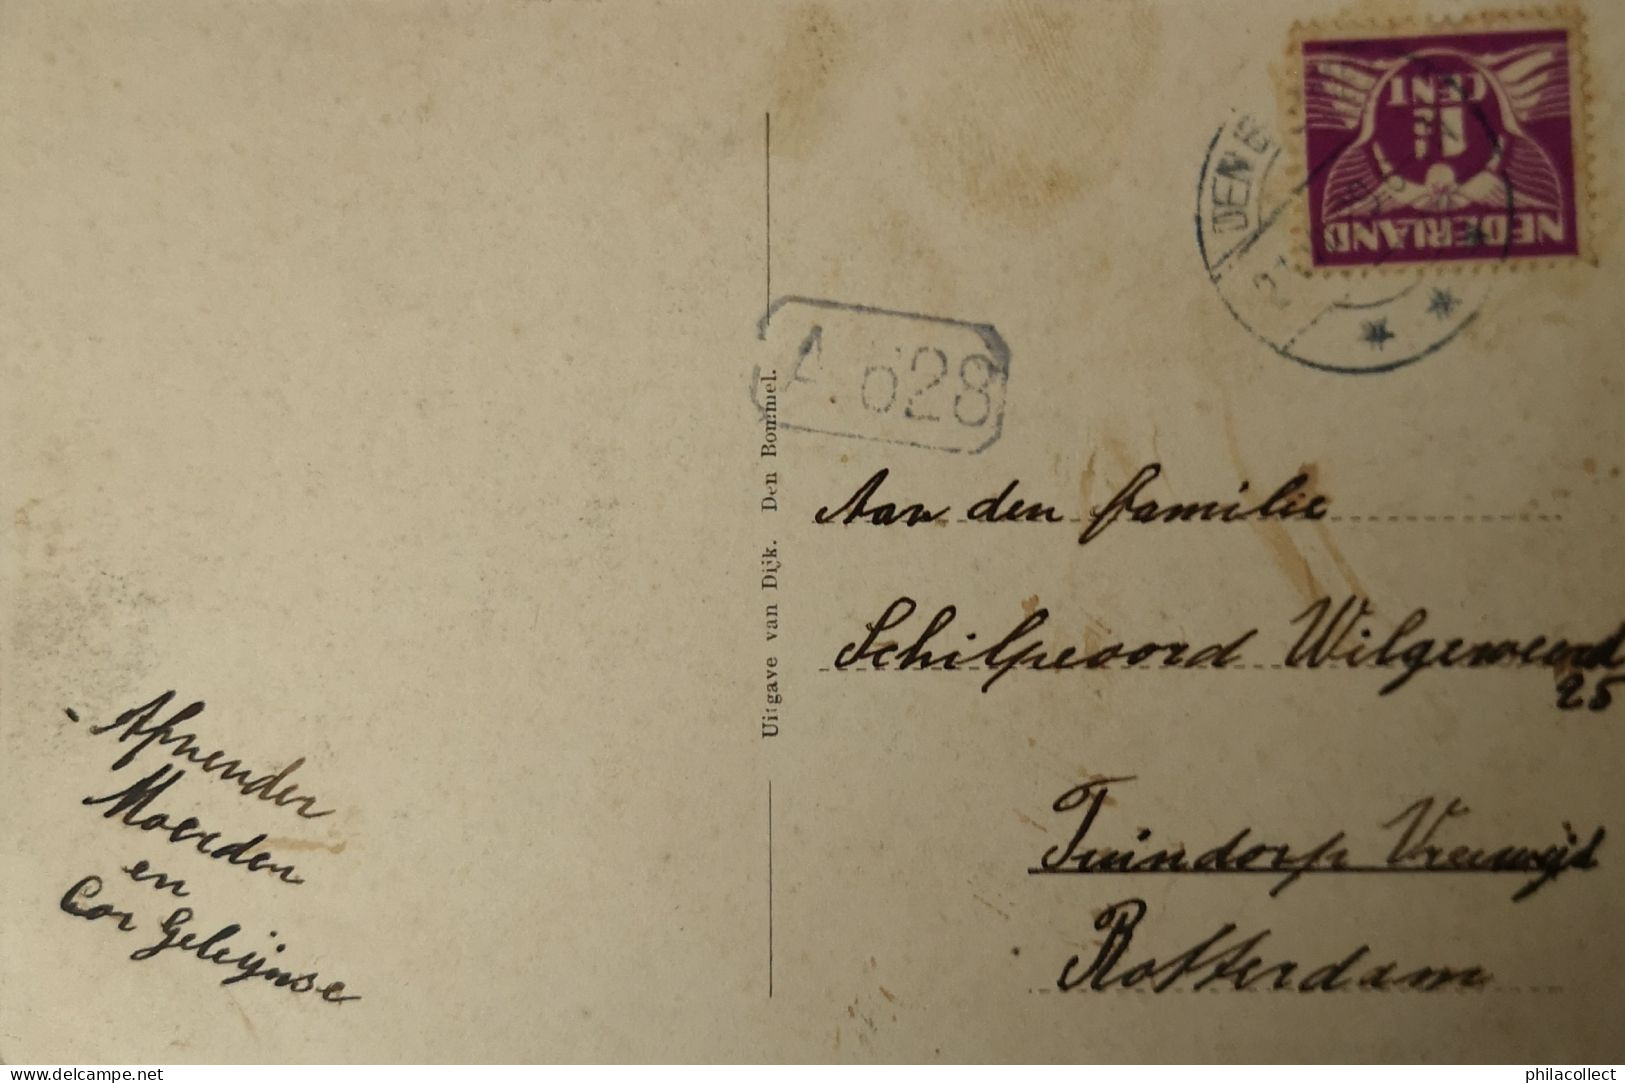 1½ CENT
NEDERLAND
DEN B
A. 628
Uitgave van Dijk. Den Bommel.
Aan den familie
Schilperoord Wilgeweerd
25
Tuindorp Vreewijk
Rotterdam
Afzender
Moerden
en
Cor Geleijnse
delcampe.net
philacollect